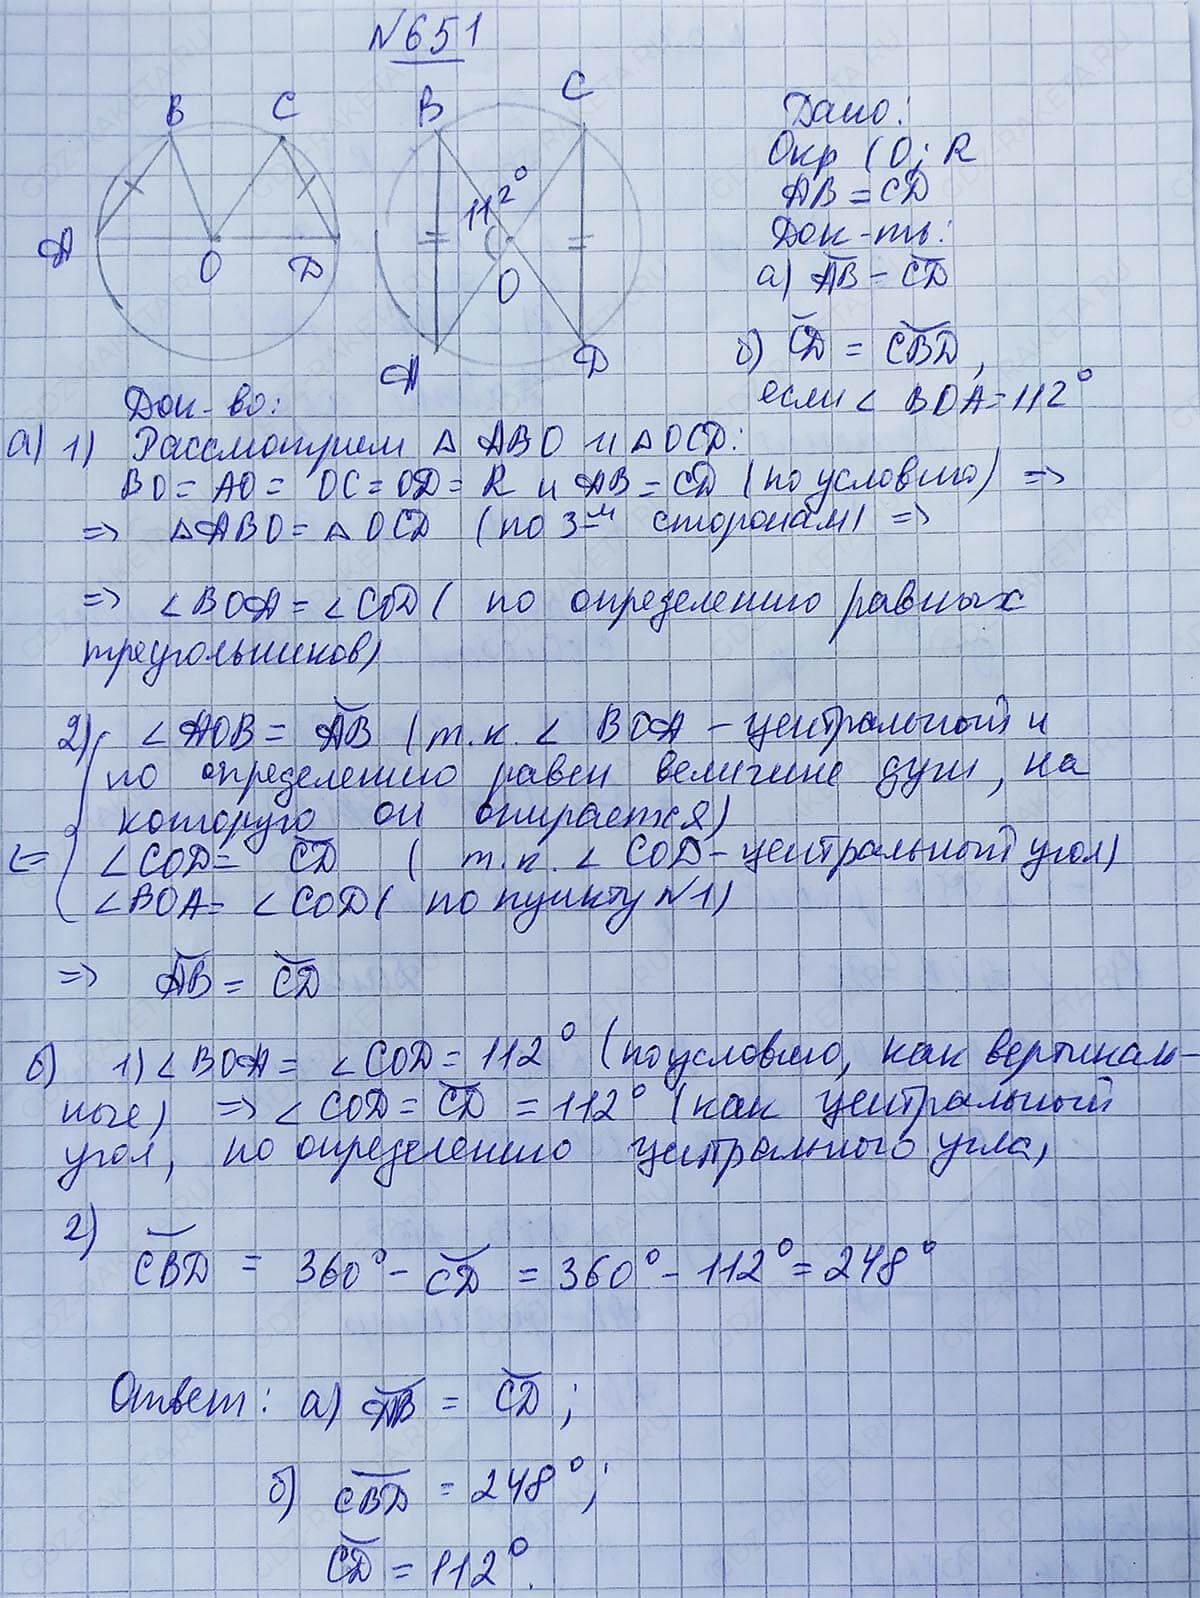 N651
B C
A O D
B C
112°
O
A D
Дано:
Окр (O; R
AB = CD
Док-ть:
а) ᴗAB = ᴗCD
б) ᴗCD = ᴗCBD,
если ∠ BOA = 112°
Док-во:
а) 1) Рассмотрим △ ABO и △ OCD:
BO = AO = OC = OD = R и AB = CD (по условию) =>
=> △ ABO = △ OCD (по 3-м сторонам) =>
=> ∠BOA = ∠COD ( по определению равных
треугольников)
2) ∠AOB = ᴗAB (т.к. ∠ BOA - центральный и
по определению равен величине дуги, на
которую он опирается)
<= ∠COD = ᴗCD ( т.к. ∠ COD - центральный угол)
∠BOA = ∠COD ( по пункту N1)
=> ᴗAB = ᴗCD
б) 1) ∠BOA = ∠COD = 112° (по условию, как вертикаль-
ные) => ∠COD = ᴗCD = 112° (как центральный
угол, по определению центрального угла)
2)
ᴗCBD = 360° - ᴗCD = 360° - 112° = 248°
Ответ: а) ᴗAB = ᴗCD;
б) ᴗCBD = 248°;
ᴗCD = 112°.